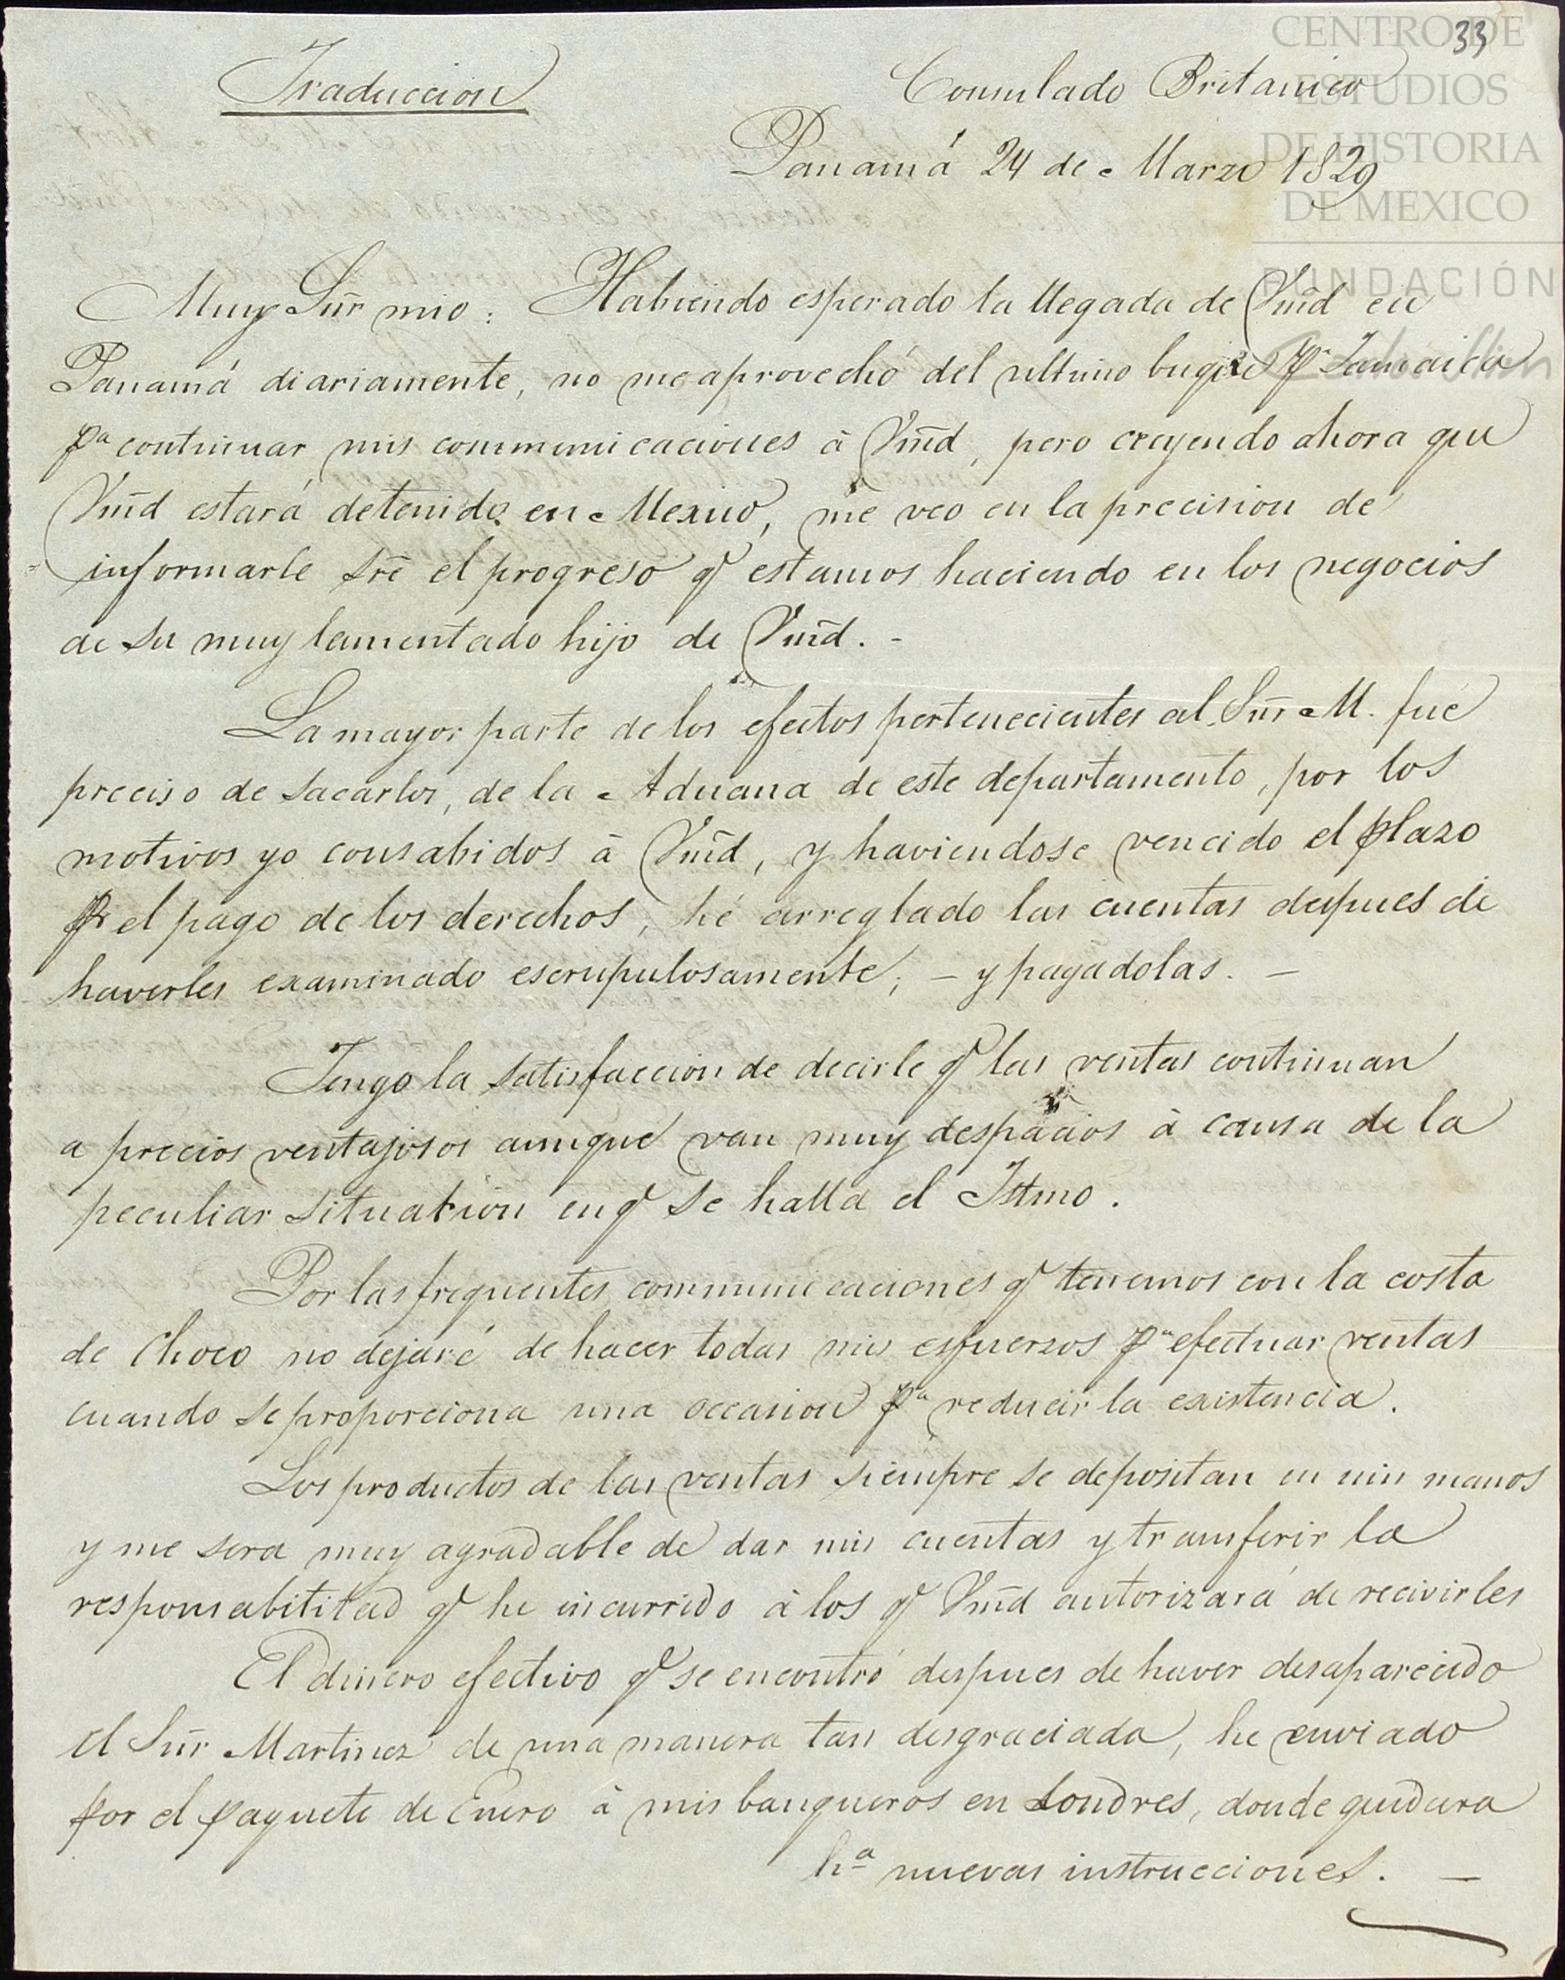 33
CENTRO DE
ESTUDIOS
DE HISTORIA
DE MEXICO
FUNDACIÓN
Carlos Slim
Traduccion
Consulado Britanico
Panamá 24 de Marzo 1829
Muy Sñr mio: Habiendo esperado la llegada de Vm̃d en
Panamá diariamente, no me aprovechó del ultimo buque pr Jamaica
pa continuar mis communicaciones à Vm̃d, pero creyendo ahora que
Vm̃d estará detenido en Mexico, me veo en la precision de
informarle sr̃e el progreso q estamos haciendo en los negocios
de su muy lamentado hijo de Vm̃d. -
La mayor parte de los efectos pertenecientes al Sñr M. fué
preciso de sacarlos, de la Aduana de este departamento, por los
motivos yo consabidos à Vm̃d, y haviendose vencido el plazo
pr el pago de los derechos, hé arreglado las cuentas despues de
haverles examinado escrupulosamente; – y pagadolas. –
Tengo la satisfaccion de decirle q las ventas continuan
a precios ventajosos aunque van muy despacios à causa de la
peculiar situation en q se halla el Istmo.
Por las frequentes communicaciones q tenemos con la costa
de Choco no dejaré de hacer todas mis esfuerzos pa efectuar ventas
cuando se proporciona una occasion pa reducir la existencia.
Los productos de las ventas siempre se depositan en mis manos
y me sera muy agradable de dar mis cuentas y transferir la
responsabilitad q he incurrido à los q Vm̃d autorizará de recivirles
El dinero efectivo q se encontró despues de haver desaparecido
el Sñr Martinez de una manera tan desgraciada, he enviado
por el paquete de Enero à mis banqueros en Londres, donde quedara
ha nuevas instrucciones. –